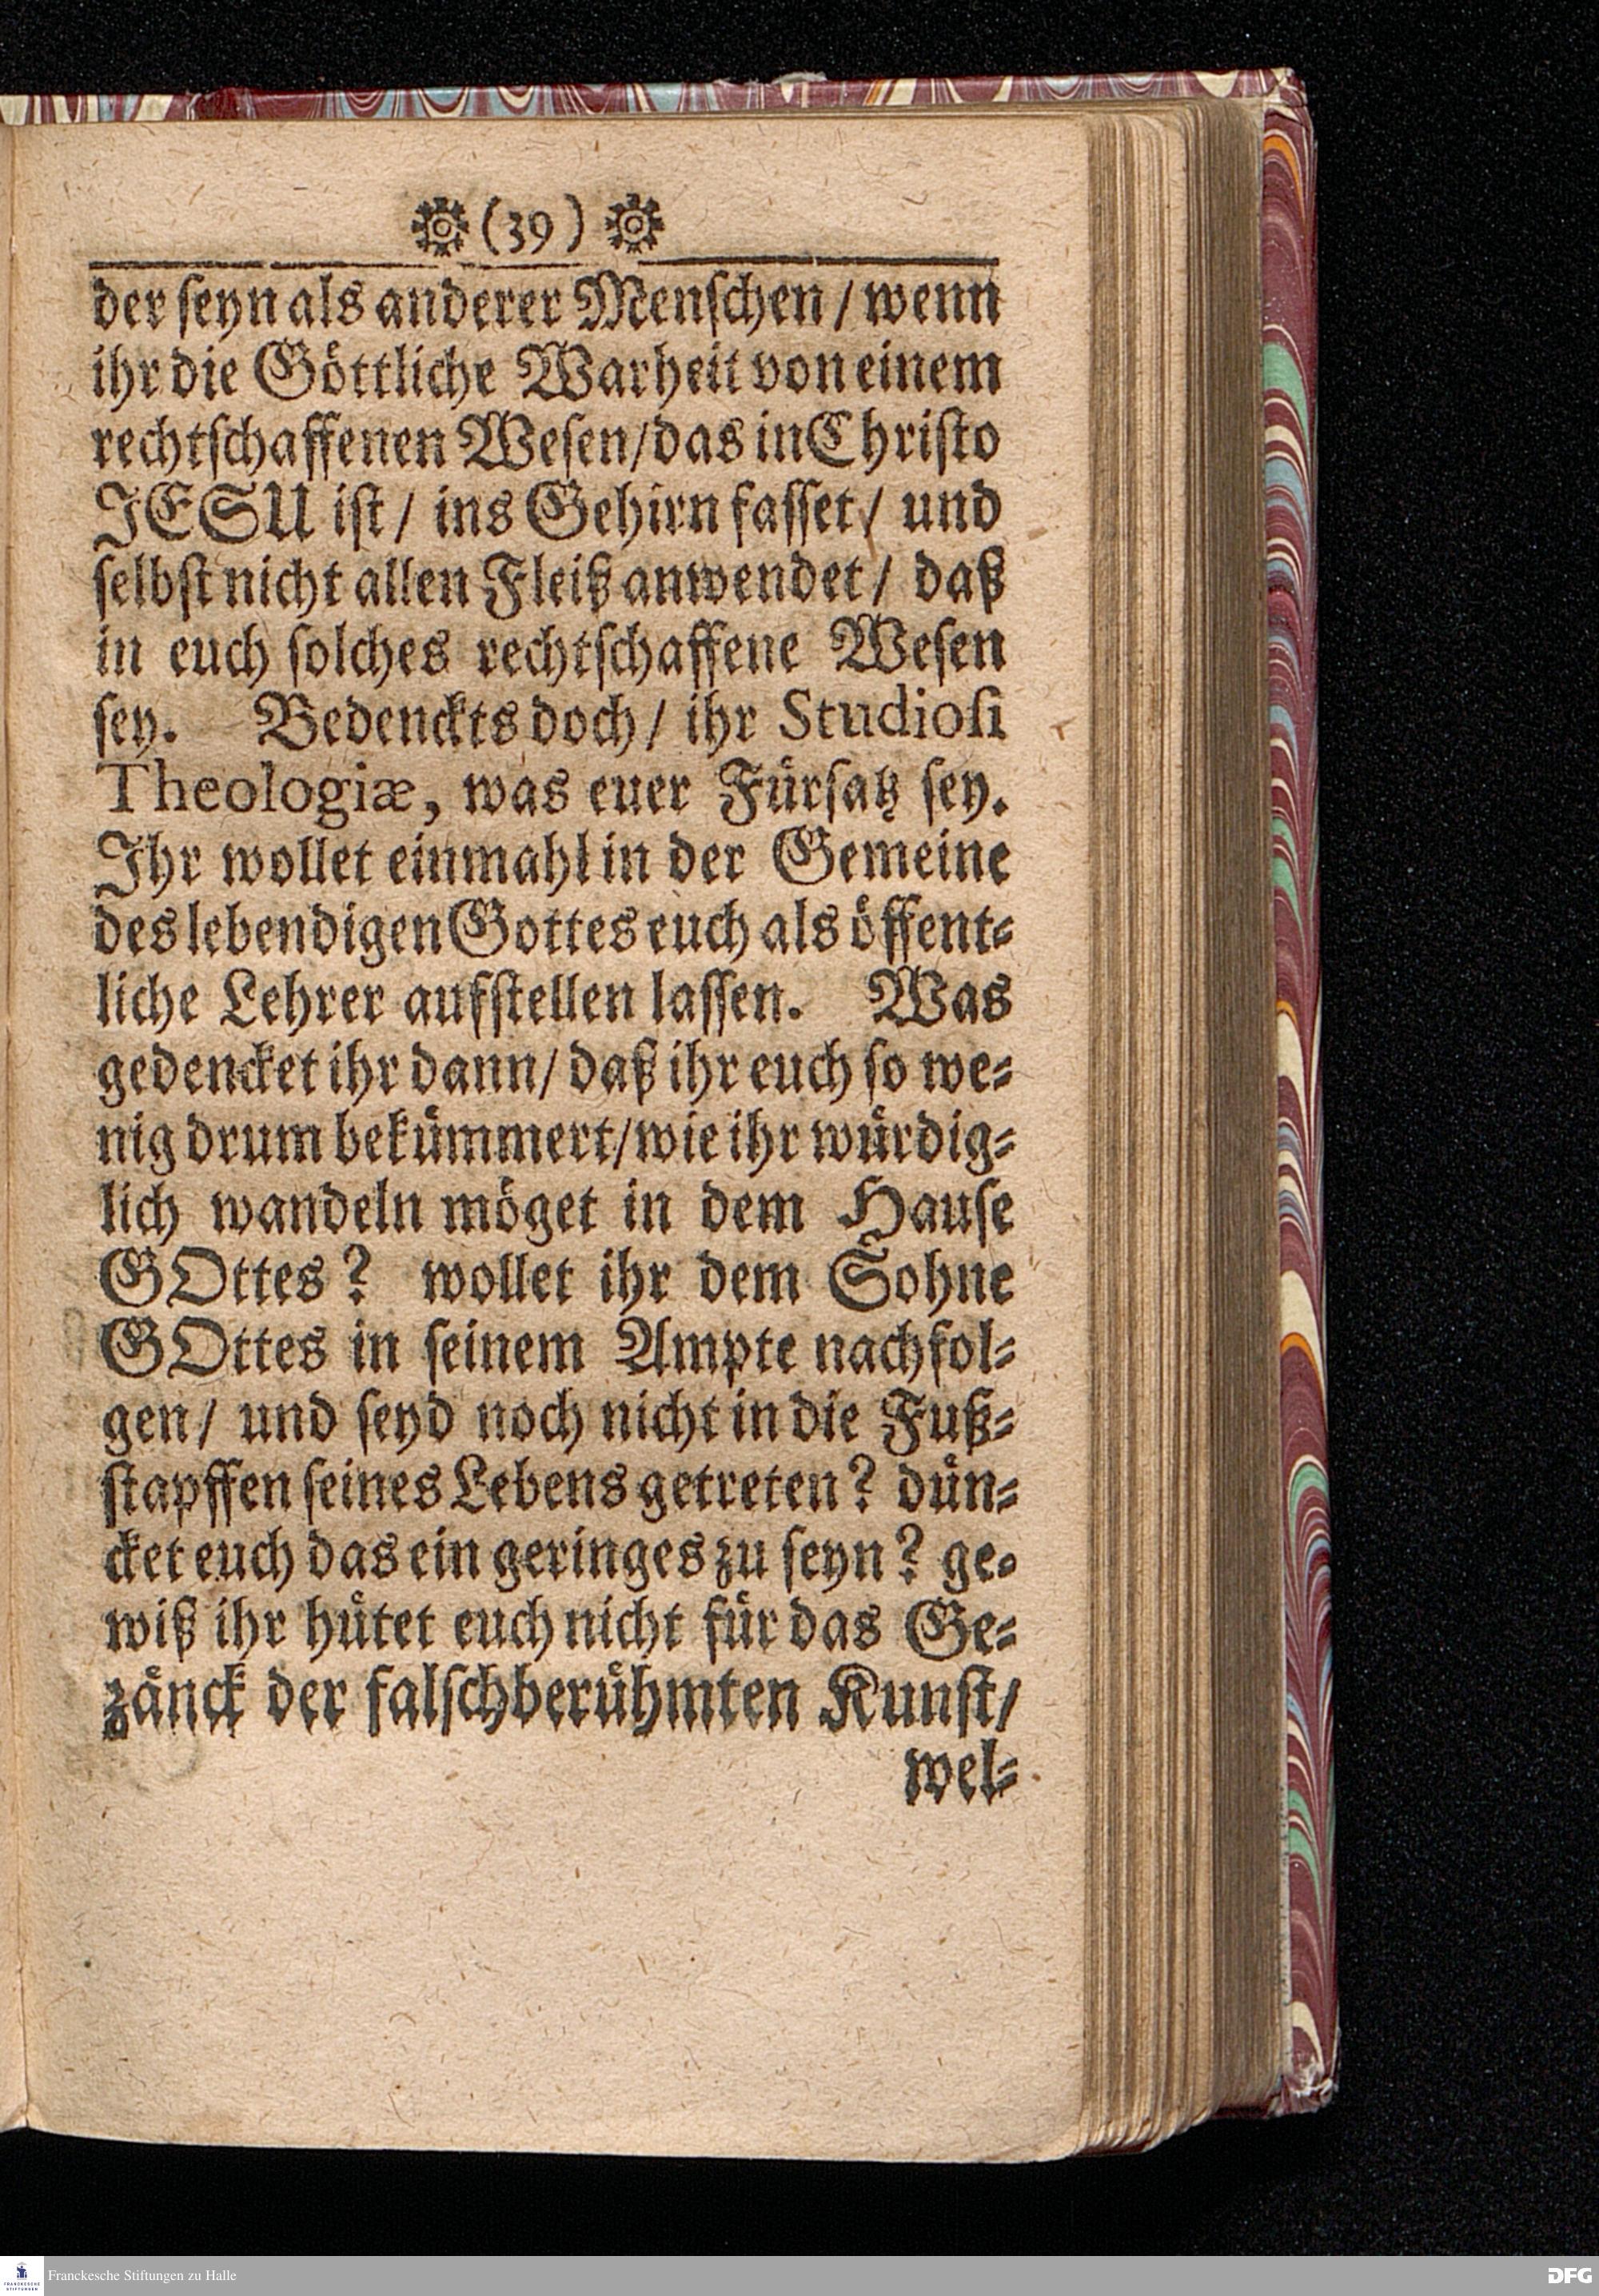 (39)
der ſeyn als anderer Menſchen / wenn
ihr die Göttliche Warheit von einem
rechtſchaffenen Weſen/das in Chriſto
JESU iſt / ins Gehirn faſſet / und
ſelbſt nicht allen Fleiß anwendet / daß
in euch ſolches rechtſchaffene Weſen
ſey. Bedenckts doch / ihr Studioſi
Theologiæ, was euer Fürſatz ſey.
Ihr wollet einmahl in der Gemeine
des lebendigen Gottes euch als öffent-
liche Lehrer aufſtellen laſſen. Was
gedencket ihr dann/ daß ihr euch ſo we-
nig drum bekümmert/wie ihr würdig-
lich wandeln möget in dem Hauſe
GOttes? wollet ihr dem Sohne
GOttes in ſeinem Ampte nachfol-
gen/ und ſeyd noch nicht in die Fuß-
ſtapffen ſeines Lebens getreten? dün-
cket euch das ein geringes zu ſeyn? ge-
wiß ihr hütet euch nicht für das Ge-
zänck der falſchberühmten Kunſt/
wel-
FRANCKESCHE STIFTUNGEN
Franckesche Stiftungen zu Halle
DFG